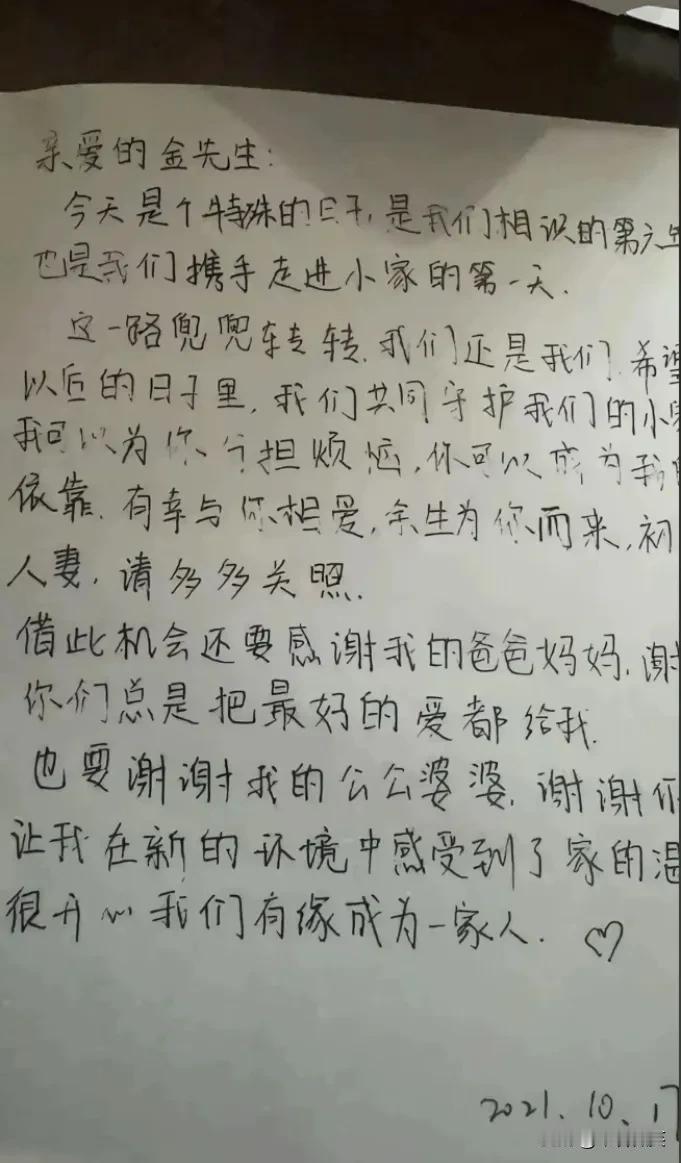 亲爱的金先生：
今天是个特殊的日子，是我们相识的第六
也是我们携手走进小家的第一天.
这一路兜兜转转.我们还是我们.希望
以后的日子里，我们共同守护我们的小
我可以为你分担烦恼，你可以成为我
依靠.有幸与你相爱，余生为你而来，初
人妻，请多多关照.
借此机会还要感谢我的爸爸妈妈，谢
你们总是把最好的爱都给我.
也要谢谢我的公公婆婆，谢谢你
让我在新的环境中感受到了家的温
很开心我们有缘成为一家人. ♡
2021.10.17